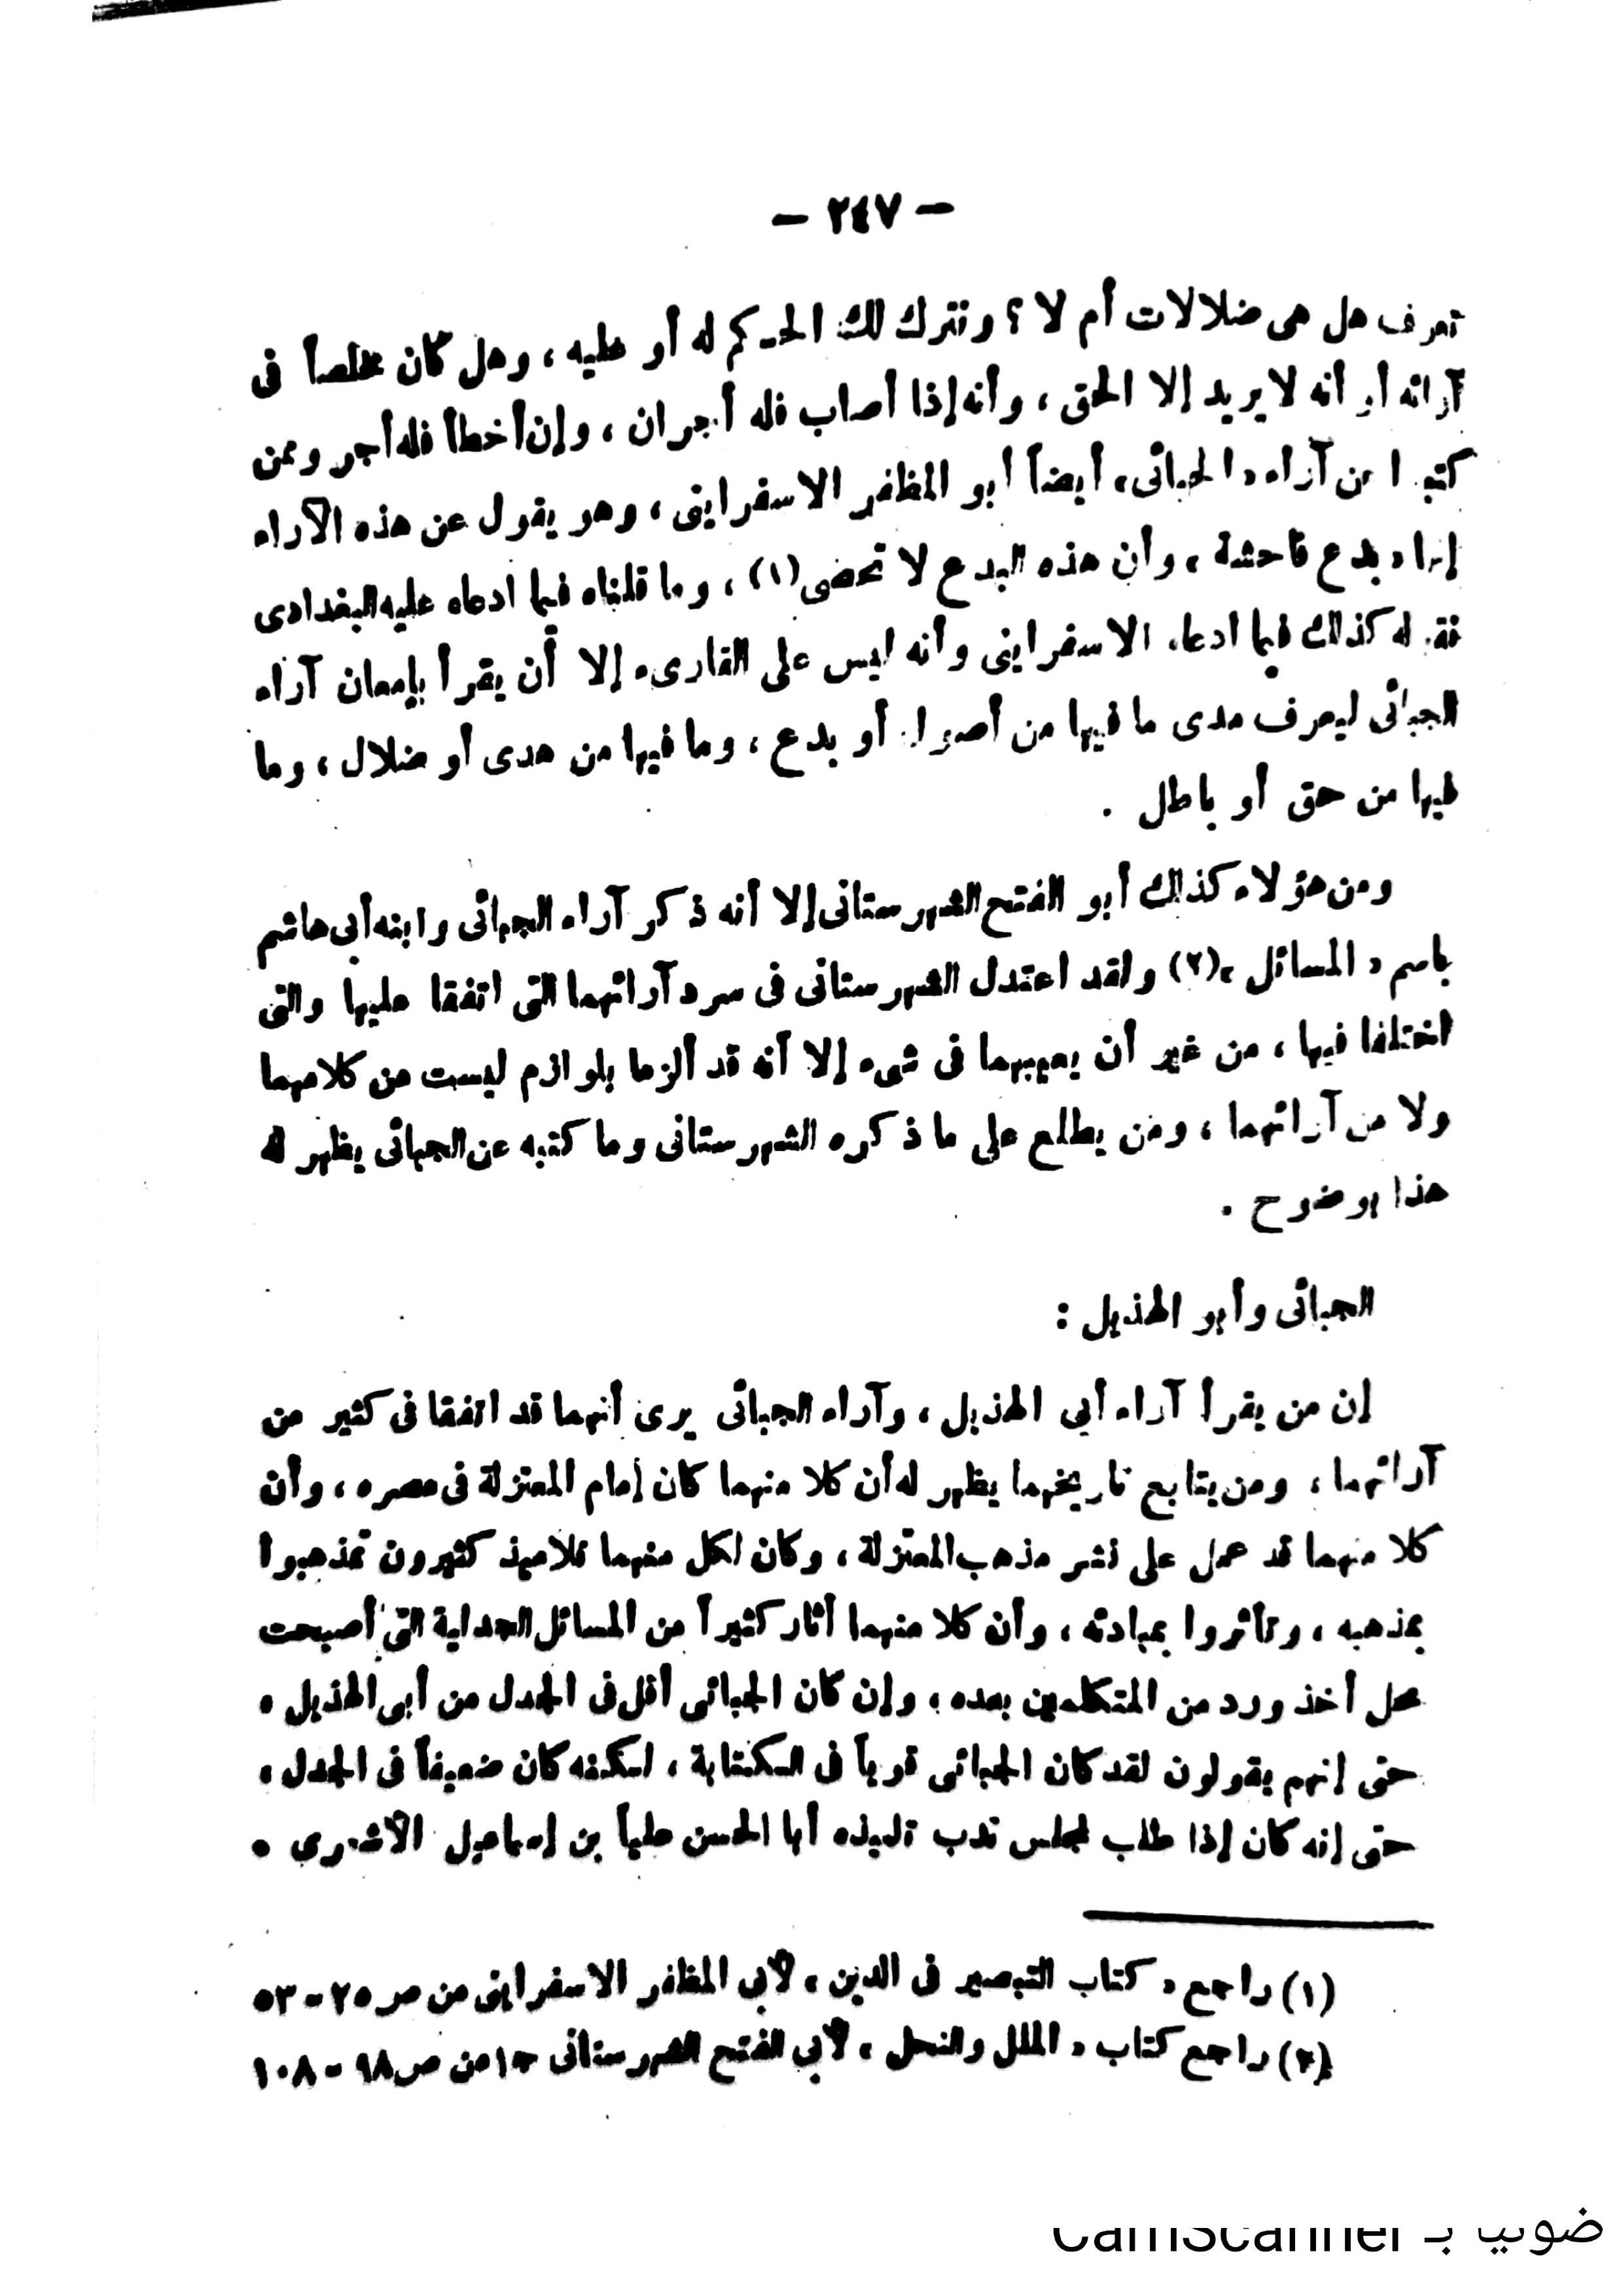 — ٢٤٧ —
تعرف هل هى ضلالات أم لا ؟ ونترك لك الحكم له أو عليه ، وهل كان مخلصاً فى
آرائه أو أنه لا يريد إلا الحق ، وأنه إذا أصاب فله أجران ، وإن أخطأ فله أجر وممن
كتبوا عن آراء « الجبائى » أيضاً أبو المظفر الاسفراينى ، وهو يقول عن هذه الآراء
إنها « بدع فاحشة » وأن هذه البدع لا تحصى (١) ، وما قلناه فيما ادعاه عليه البغدادى
نقوله كذلك فيما ادعاه الاسفراينى وأنه ليس على القارىء إلا أن يقرأ بإمعان آراء
الجبائى ليعرف مدى ما فيها من أصول أو بدع ، وما فيها من هدى أو ضلال ، وما
فيها من حق أو باطل .
ومن هؤلاء كذلك أبو الفتح الشهرستانى إلا أنه ذكر آراء الجبائى وابنه أبى هاشم
باسم « المسائل » (٢) ولقد اعتدل الشهرستانى فى سرد آرائهما التى اتفقا عليها والتى
اختلفا فيها ، من غير أن يعيبهما فى شىء إلا أنه قد ألزما بلوازم ليست من كلامهما
ولا من آرائهما ، ومن يطلع على ما ذكره الشهرستانى وما كتبه عن الجبائى يظهر له
هذا بوضوح .
الجبائى وأبو الهذيل :
إن من يقرأ آراء أبى الهذيل ، وآراء الجبائى يرى أنهما قد اتفقا فى كثير من
آرائهما ، ومن يتابع تاريخهما يظهر له أن كلا منهما كان إمام المعتزلة فى عصره ، وأن
كلا منهما قد عمل على نشر مذهب المعتزلة ، وكان لكل منهما تلاميذ كثيرون تمذهبوا
بمذهبه ، وتأثروا بمبادئه ، وأن كلا منهما أثار كثيراً من المسائل الجدلية التى أصبحت
محل أخذ ورد من المتكلمين بعده ، وإن كان الجبائى أقل فى الجدل من أبى الهذيل ،
حتى إنهم يقولون لقد كان الجبائى قوياً فى الكتابة ، لكنه كان ضعيفاً فى الجدل ،
حتى إنه كان إذا طلب لمجلس ندب تلميذه أبا الحسن علياً بن إسماعيل الأشعرى .
(١) راجع « كتاب التبصير فى الدين » لأبى المظفر الاسفراينى من ص ٢٥ - ٥٣
(٢) راجع كتاب « الملل والنحل » لأبى الفتح الشهرستانى ج ١ من ص ٩٨ - ١٠٨
ضوئيا بـ CamScanner